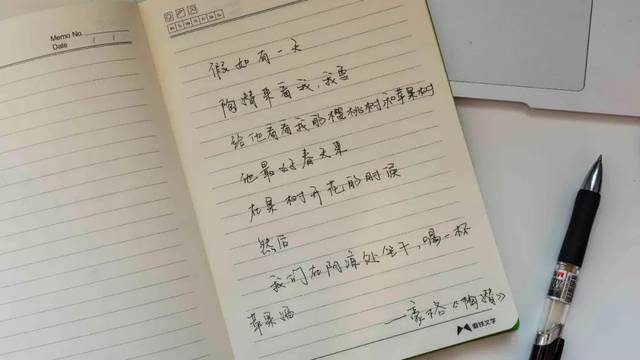 Memo No.
Date / /
假如有一天
陶潜来看我,我要
给他看看我的樱桃树和苹果树
他最好春天来
在果树开花的时候
然后
我们在阴凉处坐下,喝一杯
苹果酒
—豪格《陶潜》